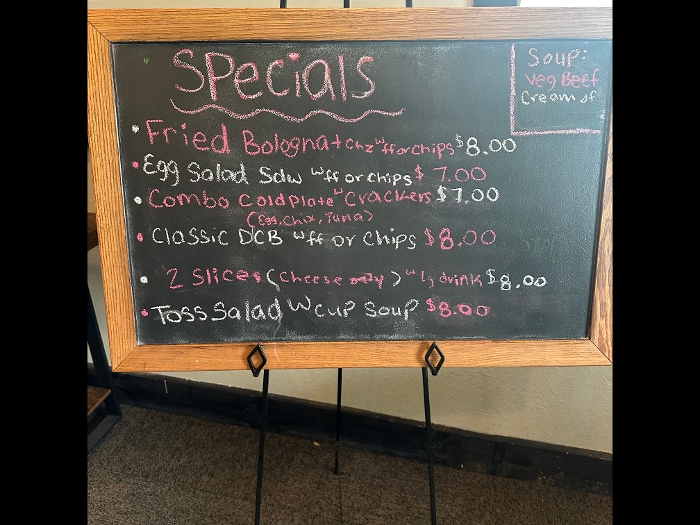 Specials
Soup:
Veg Beef
Cream of
• Fried Bologna + chz w ff or chips $8.00
• Egg Salad Sdw w ff or chips $7.00
• Combo Cold Plate w Crackers $7.00
(Egg, Chix, Tuna)
• Classic DCB w ff or chips $8.00
• 2 Slices (Cheese only) w lg drink $8.00
• Toss Salad W cup soup $8.00